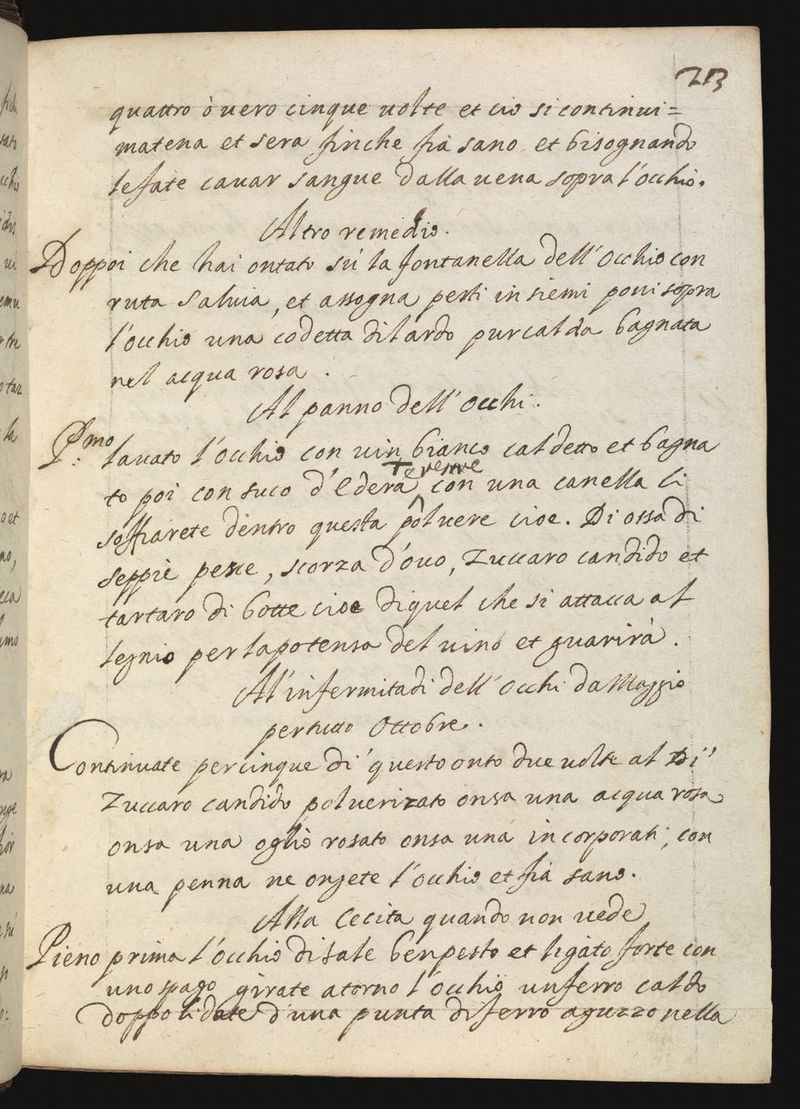 213
quattro ò vero cinque volte et cio si continui=
matena et sera finche fia sano et bisognando
le fate cavar sangue dalla vena sopra l'occhio.
Altro remedio.
Doppoi che hai ontato sù la fontanella dell'occhio con
ruta salvia, et assogna pesti insiemi poni sopra
l'occhio una codetta di lardo pur calda bagnata
nel acqua rosa.
Al panno dell'occhi.
P.mo lavato l'occhio con vin bianco caldetto et bagna
to poi con suco d'edera terestre con una canella li
soffiarete dentro questa polvere cioe. Di ossa di
seppiè pesce, scorza d'ovo, zuccaro candido et
tartaro di botte cioe di quel che si attacca al
legnio per la potensa del vino et guarirà.
Al'infermitadi dell'occhi da Maggio
per tutto Ottobre.
Continuate per cinque di questo onto due volte al Dì
Zuccaro candido polverizato onsa una acqua rosa
onsa una oglio rosato onsa una incorporati, con
una penna ne ongete l'occhio et fia sano.
Alla Cecita quando non vede
Pieno prima l'occhio di sale ben pesto et ligato forte con
uno spago girate atorno l'occhio un ferro caldo
doppo li date d'una punta di ferro aguzzo nella